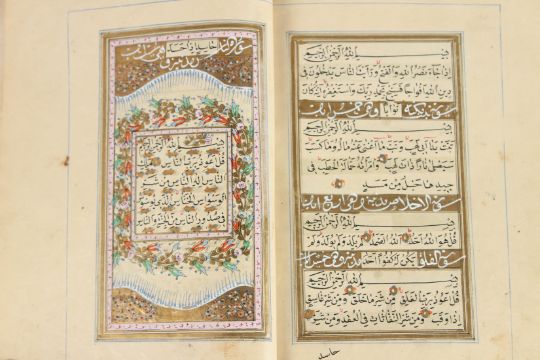 بسم الله الرحمن الرحيم
اذا جاء نصر الله والفتح ورايت الناس يدخلون في
دين الله افواجا فسبح بحمد ربك واستغفره انه كان
سورة تبت مكية توابا وهي خمس ايات
بسم الله الرحمن الرحيم
تبت يدا ابي لهب وتب ما اغنى عنه ماله وما كسب
سيصلى نارا ذات لهب وامراته حمالة الحطب في
جيدها حبل من مسد
سورة الاخلاص مدنية وهي اربع ايات
بسم الله الرحمن الرحيم
قل هو الله احد الله الصمد لم يلد ولم يولد ولم
سورة الفلق يكن له كفوا احد مدنية وهي خمس ايات
بسم الله الرحمن الرحيم
قل اعوذ برب الفلق من شر ما خلق ومن شر غاسق
اذا وقب ومن شر النفاثات في العقد ومن شر
حاسد
حاسد اذا حسد وهي ست ايات
بسم الله الرحمن الرحيم
قل اعوذ برب الناس ملك
الناس اله الناس من شر
الوسواس الخناس الذي يوسوس
في صدور الناس من الجنة والناس